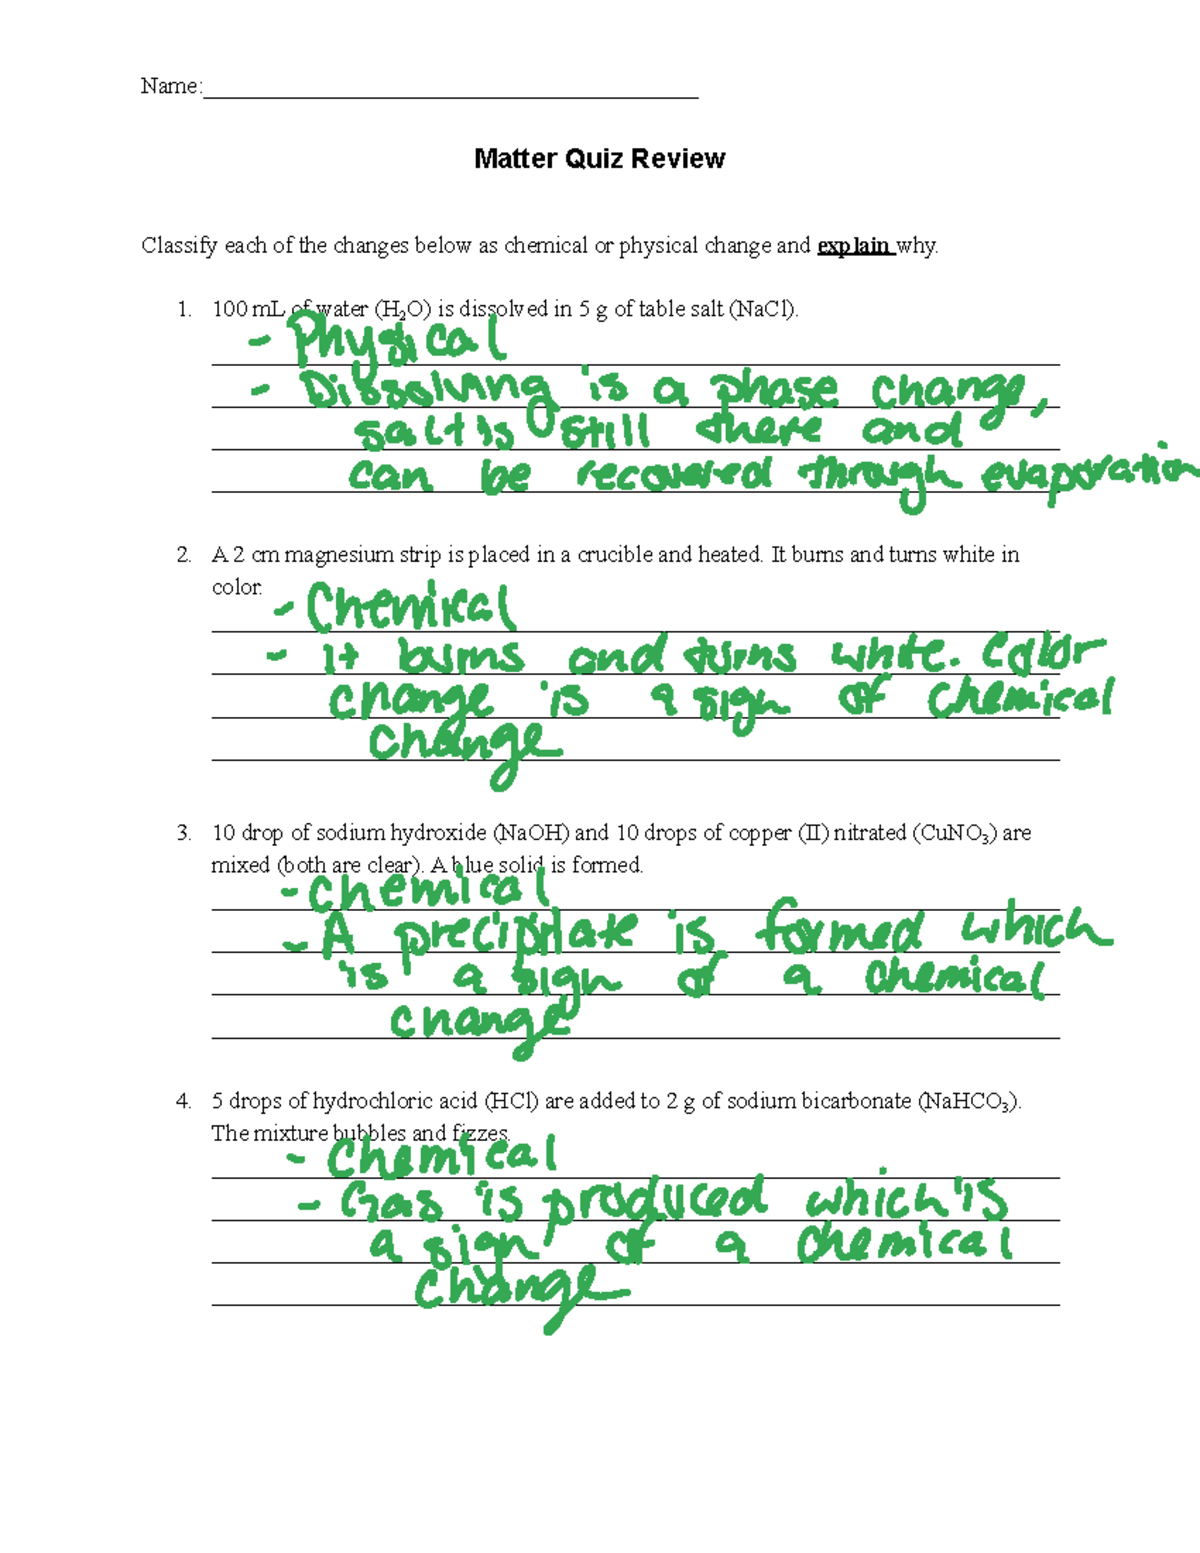 Name:
Matter Quiz Review
Classify each of the changes below as chemical or physical change and explain why.
1. 100 mL of water (H₂O) is dissolved in 5 g of table salt (NaCl).
- Physical
- Dissolving is a phase change,
salt is still there and
can be recovered through evaporation
2. A 2 cm magnesium strip is placed in a crucible and heated. It burns and turns white in
color.
- Chemical
- it burns and turns white. Color
change is a sign of chemical
change
3. 10 drop of sodium hydroxide (NaOH) and 10 drops of copper (II) nitrated (CuNO₃) are
mixed (both are clear). A blue solid is formed.
- chemical
- A precipitate is formed which
is a sign of a chemical
change
4. 5 drops of hydrochloric acid (HCl) are added to 2 g of sodium bicarbonate (NaHCO₃).
The mixture bubbles and fizzes.
- Chemical
- Gas is produced which is
a sign of a chemical
change